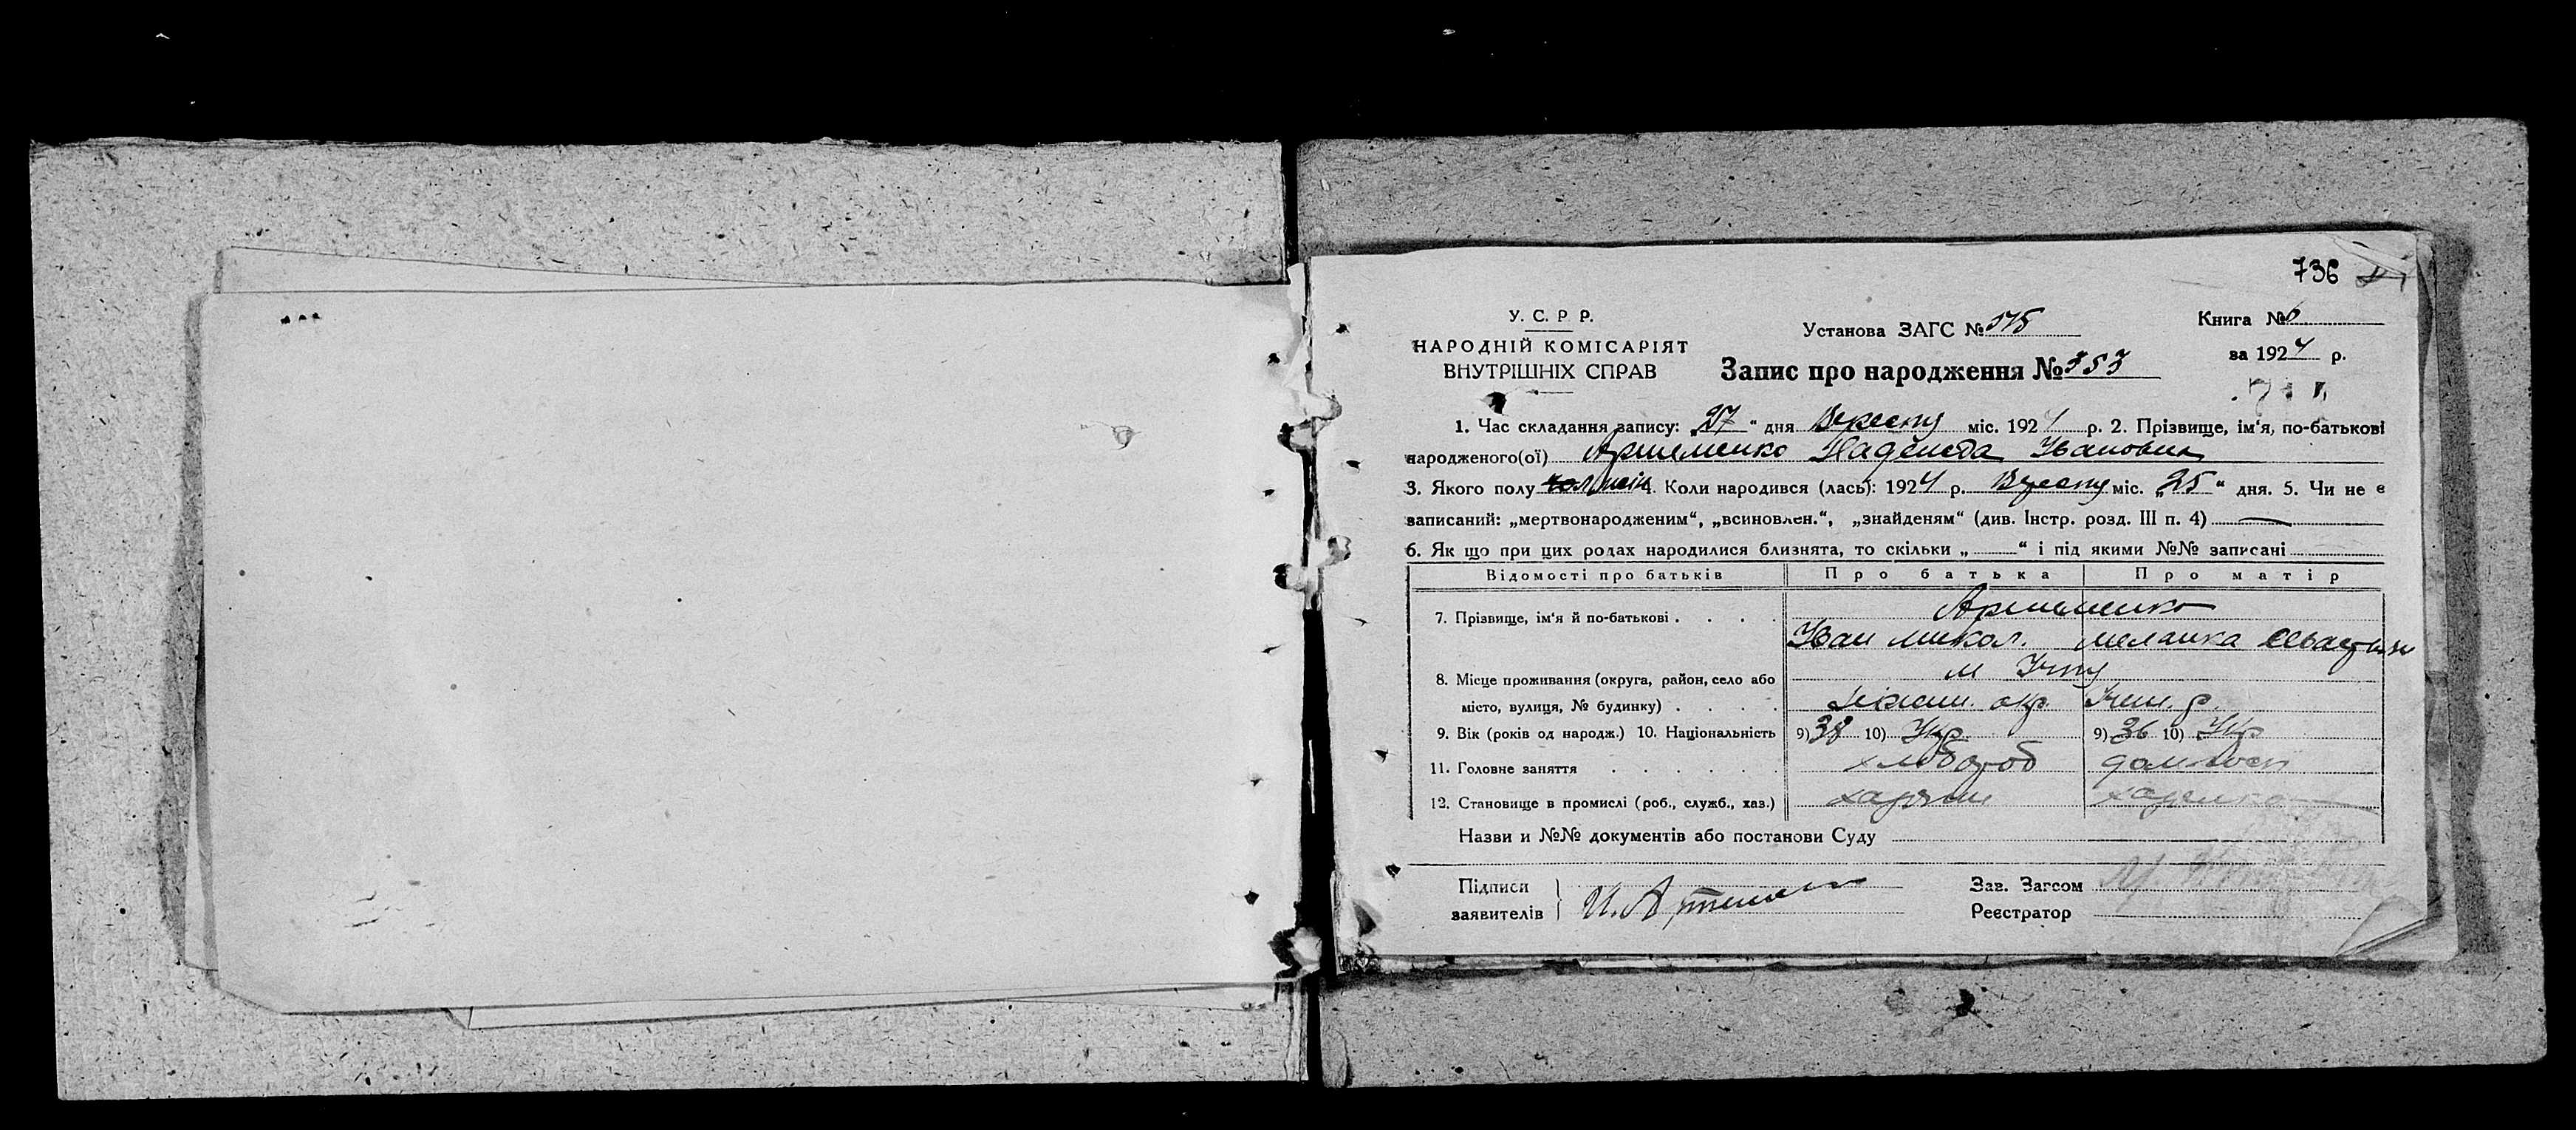 736
У. С. Р Р.
НАРОДНІЙ КОМІСАРІЯТ
ВНУТРІШНІХ СПРАВ
Установа ЗАГС №
Запис про народження № 353
Книга № 6
за 1924 р.
1. Час складання запису: „27“ дня Вересту міс. 1924 р. 2. Прізвище, ім‘я, по-батькові
народженого(ої) Артеменко Надежда Ивановна
3. Якого полу чол жін 4. Коли народився (лась): 1924 р. Вересту міс. „25“ дня. 5. Чи не є
записаний: „мертвонародженим“, „всиновлен.“, „знайденям“ (див. Інстр. розд. III п. 4)
6. Як що при цих родах народилися близнята, то скільки „ “ і під якими №№ записані
Відомості про батьків Про батька Про матір
7. Прізвище, ім‘я й по-батькові . . . . Артеменко
Иван микол. меланка
8. Місце проживання (округа, район, село або м Ичну
місто, вулиця, № будинку) . . . . окр. Ичн. р.
9. Вік (років од народж.) 10. Національність 9) 38 10) Укр. 9) 36 10) Укр
11. Головне заняття . . . . . . хлібороб
12. Становище в промислі (роб., служб., хаз.) хазяин
Назви и №№ документів або постанови Суду
Підписи
заявителів И. Артеменко
Зав. Загсом
Реєстратор